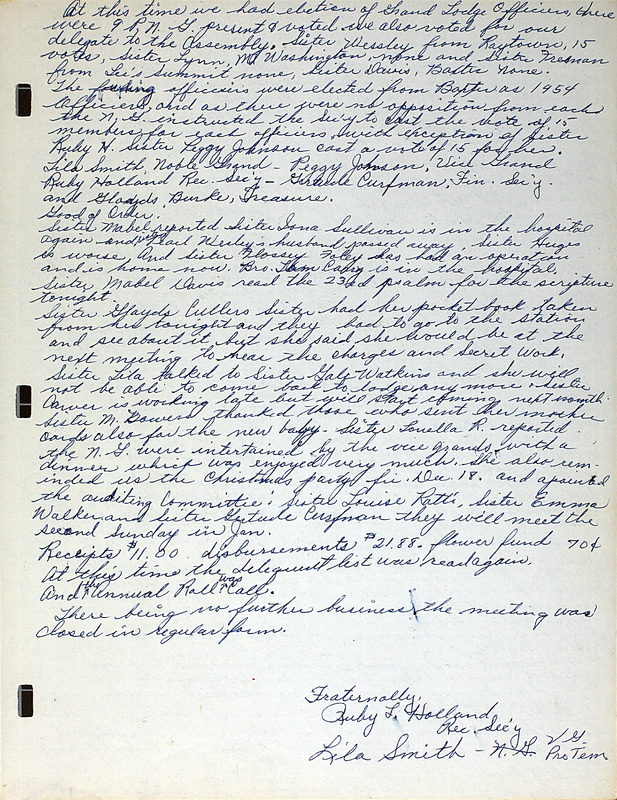 At this time we had election of Grand Lodge Officers, there
were 9 P. N. G. present & voted. we also voted for our
delegate to the Assembly. Sister Wessley from Raytown, 15
votes, Sister Lynn, Mt Washington, none and Sister
from Lee's Summit none, Sister Davis, Baxter None.
The officiers were elected from as 1954
Officiers, and as there were no opposition from each
the N. G. instructed the Sec'y to cast the vote of 15
members for each officiers, with exception of Sister
Ruby H. Sister Peggy Johnson cast a vote of 15 for her.
Lila Smith, Noble Grand - Peggy Jonson, Vice Grand
Ruby Holland Rec. Sec'y - Gertude Curfman, Fin. Sec'y.
and Gladyds, Burke, Treasure.
Good of Order:
Sister Mabel reported Sister Iona Sullivan is in the hospital
again and Wesley's husband passed away, Sister Huges
is worse, and Sister Flossey Foley has had an operation
and is home now. Bro. is in the hospital,
Sister Mabel Davis read the 23rd psalm for the scripture
tonight.
Sister Glayds Cullers Sister had her pocket book taken
from her tonight and they had to go to the station
and see about it, but she said she would be at the
next meeting to hear the charges and Secret Work.
Sister Lila talked to Sister Gale Watkins and she will
not be able to come back to lodge any more. Sister
Carver is working late but will start coming next month.
Sister M. Bowers thanked those who sent her mother
cards also for the new baby. Sister Louella R. reported
the N. G. were intertained by the vice grands, with a
dinner which was enjoyed very much. She also rem-
inded us the Christmas party fri. Dec. 18. and apointed
the auditing Committee: Sister Louise Ratti, Sister Emma
Walker and Sister Gertude Curfman they will meet the
second Sunday in Jan.
Receipts $11.00 disbursements $21.88. flower fund 70¢
At this time the deliquent list was read again.
And the annual Roll was Call.
There being no further business, the meeting was
closed in regular form.
Fraternally,
Ruby L. Holland
Rec. Sec'y
Lila Smith - N. G. V G
Pro Tem